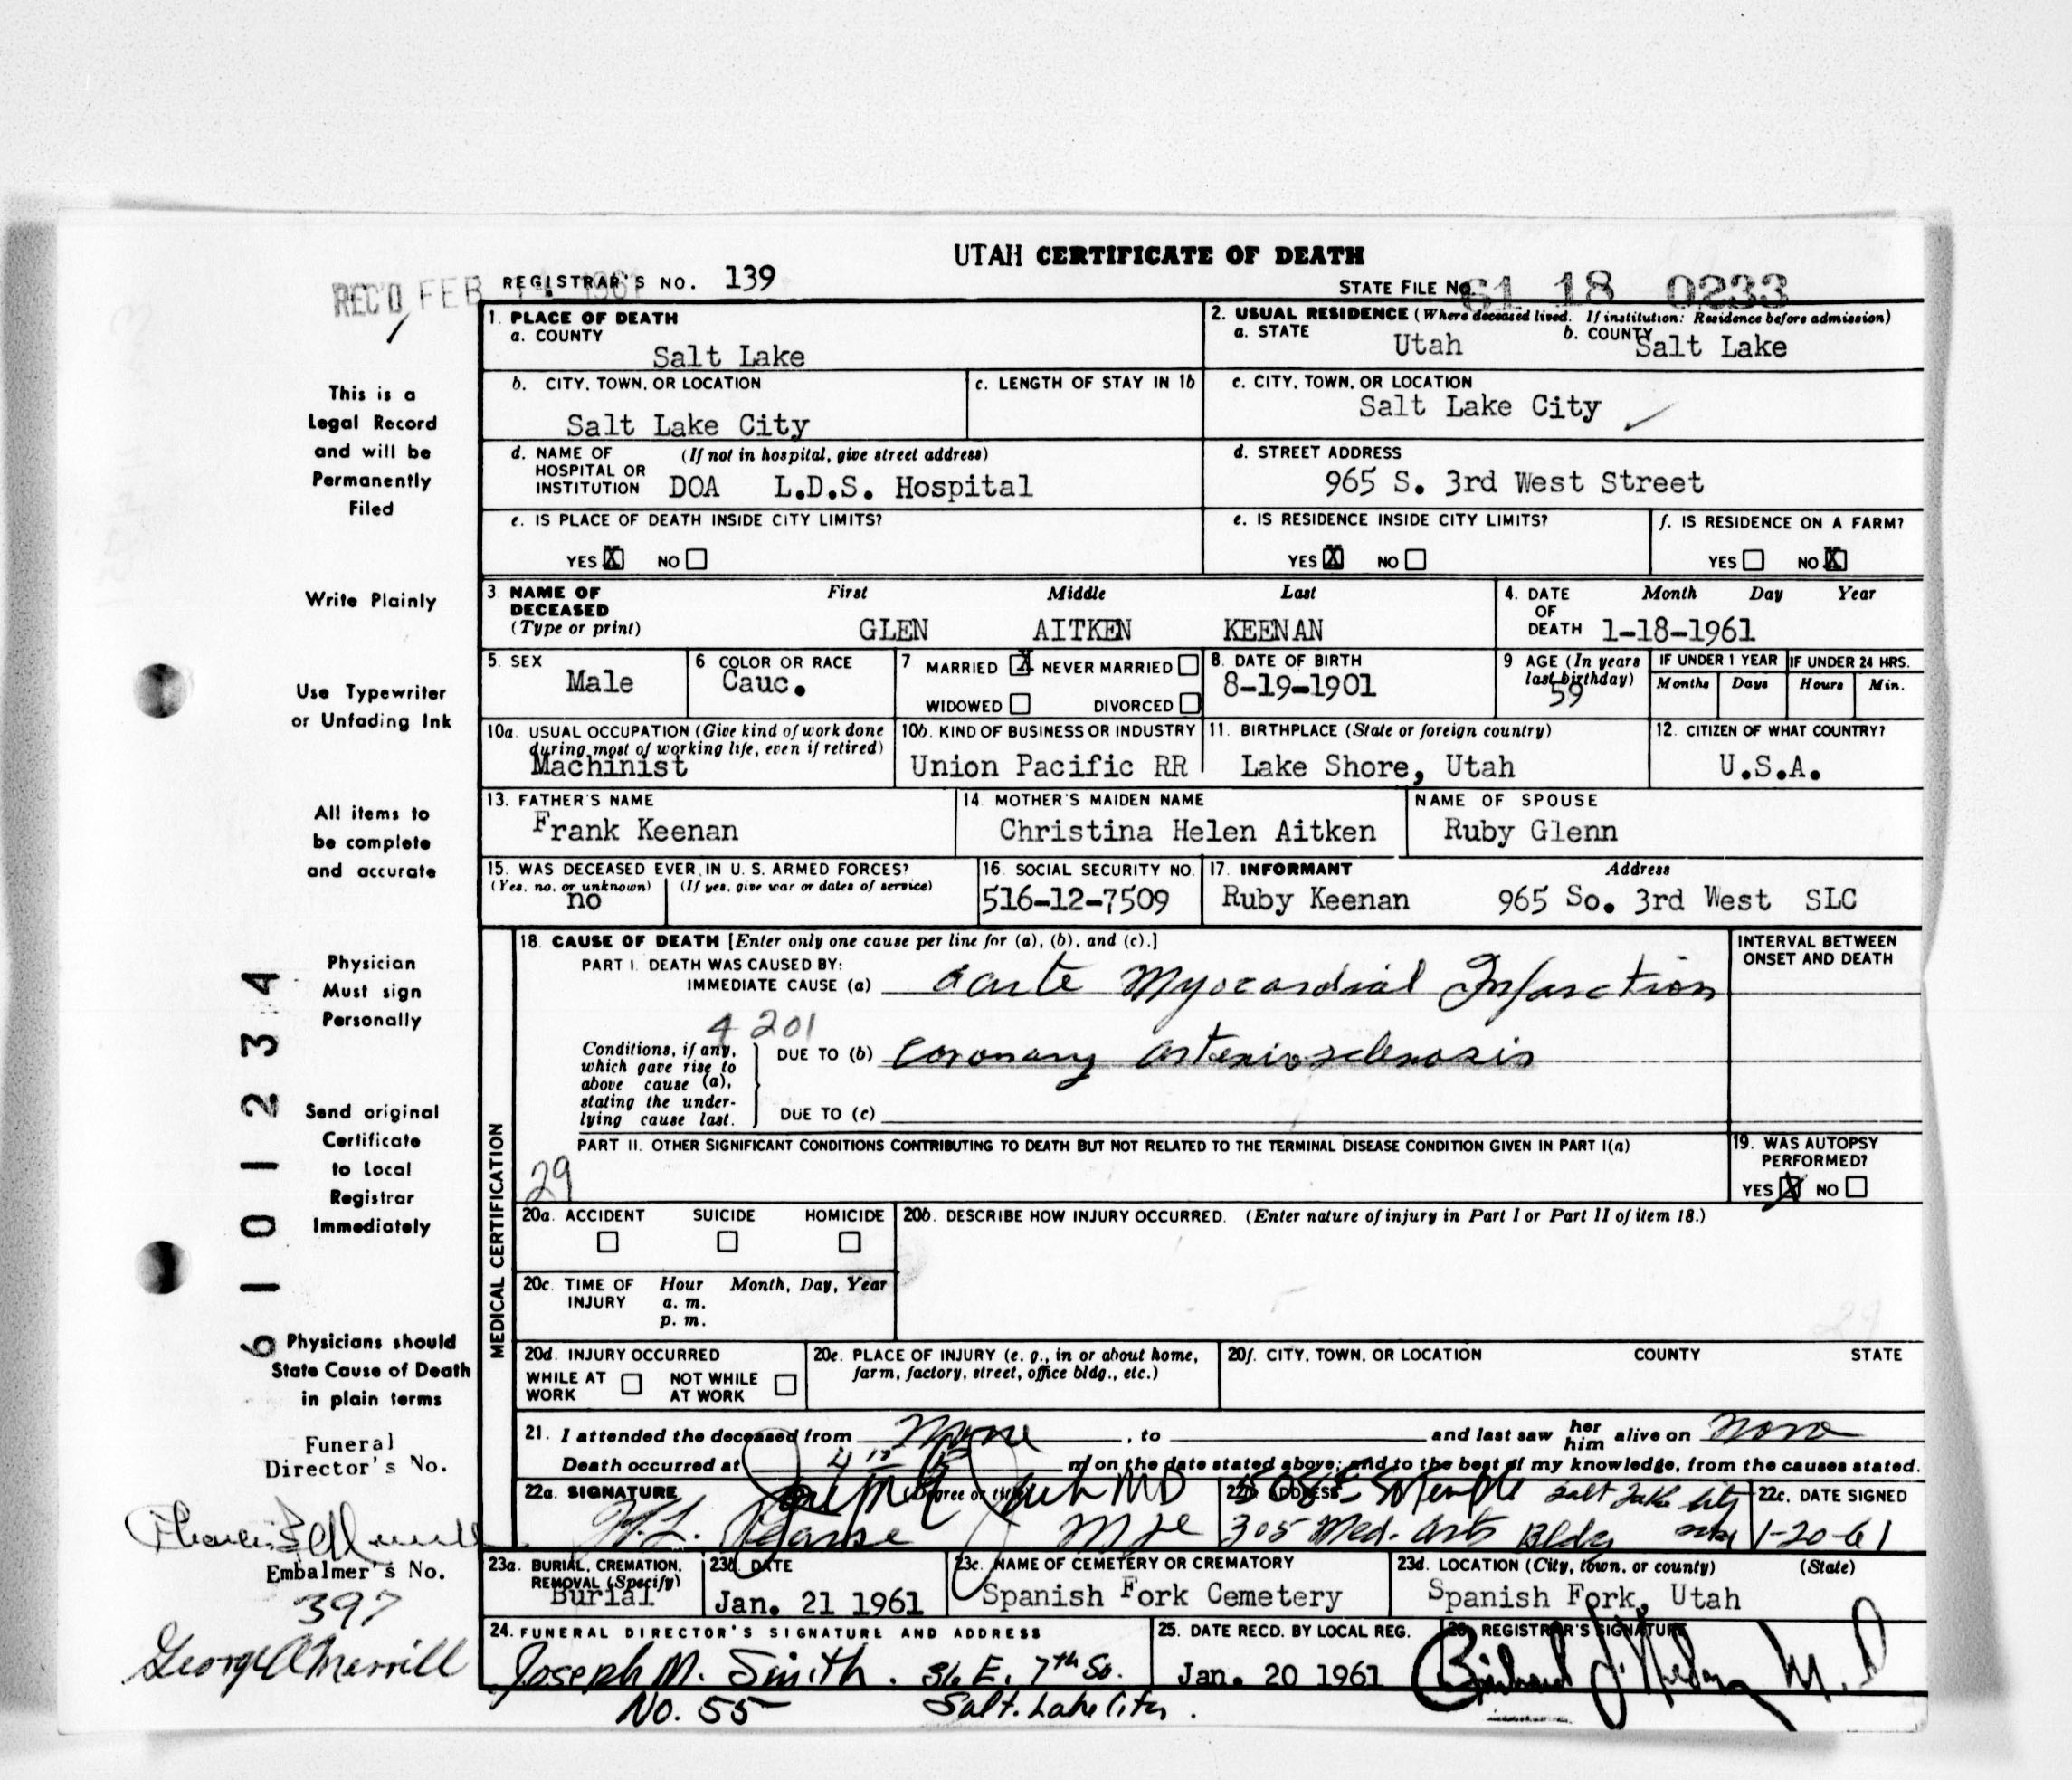 UTAH CERTIFICATE OF DEATH
REC'D FEB 1961
REGISTRAR'S NO. 139
STATE FILE No. 61 18 0233
1. PLACE OF DEATH
a. COUNTY
Salt Lake
2. USUAL RESIDENCE (Where deceased lived. If institution: Residence before admission)
a. STATE Utah b. COUNTY Salt Lake
b. CITY, TOWN, OR LOCATION
Salt Lake City
c. LENGTH OF STAY IN 1b
c. CITY, TOWN, OR LOCATION
Salt Lake City
d. NAME OF HOSPITAL OR INSTITUTION (If not in hospital, give street address)
DOA L.D.S. Hospital
d. STREET ADDRESS
965 S. 3rd West Street
e. IS PLACE OF DEATH INSIDE CITY LIMITS?
YES X NO
e. IS RESIDENCE INSIDE CITY LIMITS?
YES X NO
f. IS RESIDENCE ON A FARM?
YES NO X
3. NAME OF DECEASED (Type or print)
First Middle Last
GLEN AITKEN KEENAN
4. DATE OF DEATH Month Day Year
1-18-1961
5. SEX
Male
6. COLOR OR RACE
Cauc.
7 MARRIED X NEVER MARRIED
WIDOWED DIVORCED
8. DATE OF BIRTH
8-19-1901
9 AGE (In years last birthday)
59
IF UNDER 1 YEAR
Months Days
IF UNDER 24 HRS.
Hours Min.
10a. USUAL OCCUPATION (Give kind of work done during most of working life, even if retired)
Machinist
10b. KIND OF BUSINESS OR INDUSTRY
Union Pacific RR
11. BIRTHPLACE (State or foreign country)
Lake Shore, Utah
12. CITIZEN OF WHAT COUNTRY?
U.S.A.
13. FATHER'S NAME
Frank Keenan
14. MOTHER'S MAIDEN NAME
Christina Helen Aitken
NAME OF SPOUSE
Ruby Glenn
15. WAS DECEASED EVER IN U. S. ARMED FORCES?
(Yes, no, or unknown) (If yes, give war or dates of service)
no
16. SOCIAL SECURITY NO.
516-12-7509
17. INFORMANT Address
Ruby Keenan 965 So. 3rd West SLC
MEDICAL CERTIFICATION
18. CAUSE OF DEATH [Enter only one cause per line for (a), (b), and (c).]
INTERVAL BETWEEN ONSET AND DEATH
PART I. DEATH WAS CAUSED BY:
IMMEDIATE CAUSE (a) acute Myocardial Infarction
4201
Conditions, if any, which gave rise to above cause (a), stating the underlying cause last.
DUE TO (b) Coronary arteriosclerosis
DUE TO (c)
PART II. OTHER SIGNIFICANT CONDITIONS CONTRIBUTING TO DEATH BUT NOT RELATED TO THE TERMINAL DISEASE CONDITION GIVEN IN PART I(a)
29
19. WAS AUTOPSY PERFORMED?
YES X NO
20a. ACCIDENT SUICIDE HOMICIDE
20b. DESCRIBE HOW INJURY OCCURRED. (Enter nature of injury in Part I or Part II of item 18.)
20c. TIME OF INJURY Hour Month, Day, Year
a. m.
p. m.
20d. INJURY OCCURRED
WHILE AT WORK NOT WHILE AT WORK
20e. PLACE OF INJURY (e. g., in or about home, farm, factory, street, office bldg., etc.)
20f. CITY, TOWN, OR LOCATION COUNTY STATE
21. I attended the deceased from , to and last saw her him alive on
Death occurred at m on the date stated above; and to the best of my knowledge, from the causes stated.
22a. SIGNATURE (Degree or title) MD
22b. ADDRESS Salt Lake City
305 Med. Arts Bldg
22c. DATE SIGNED
1-20-61
23a. BURIAL, CREMATION, REMOVAL (Specify)
Burial
23b. DATE
Jan. 21 1961
23c. NAME OF CEMETERY OR CREMATORY
Spanish Fork Cemetery
23d. LOCATION (City, town, or county) (State)
Spanish Fork, Utah
24. FUNERAL DIRECTOR'S SIGNATURE AND ADDRESS
Joseph M. Smith. 36 E. 7th So.
No. 55 Salt Lake City.
25. DATE RECD. BY LOCAL REG.
Jan. 20 1961
26. REGISTRAR'S SIGNATURE
This is a
Legal Record
and will be
Permanently
Filed
Write Plainly
Use Typewriter
or Unfading Ink
All items to
be complete
and accurate
Physician
Must sign
Personally
Send original
Certificate
to Local
Registrar
Immediately
Physicians should
State Cause of Death
in plain terms
6101234
Funeral
Director's No.
Embalmer's No.
397
George A Merrill